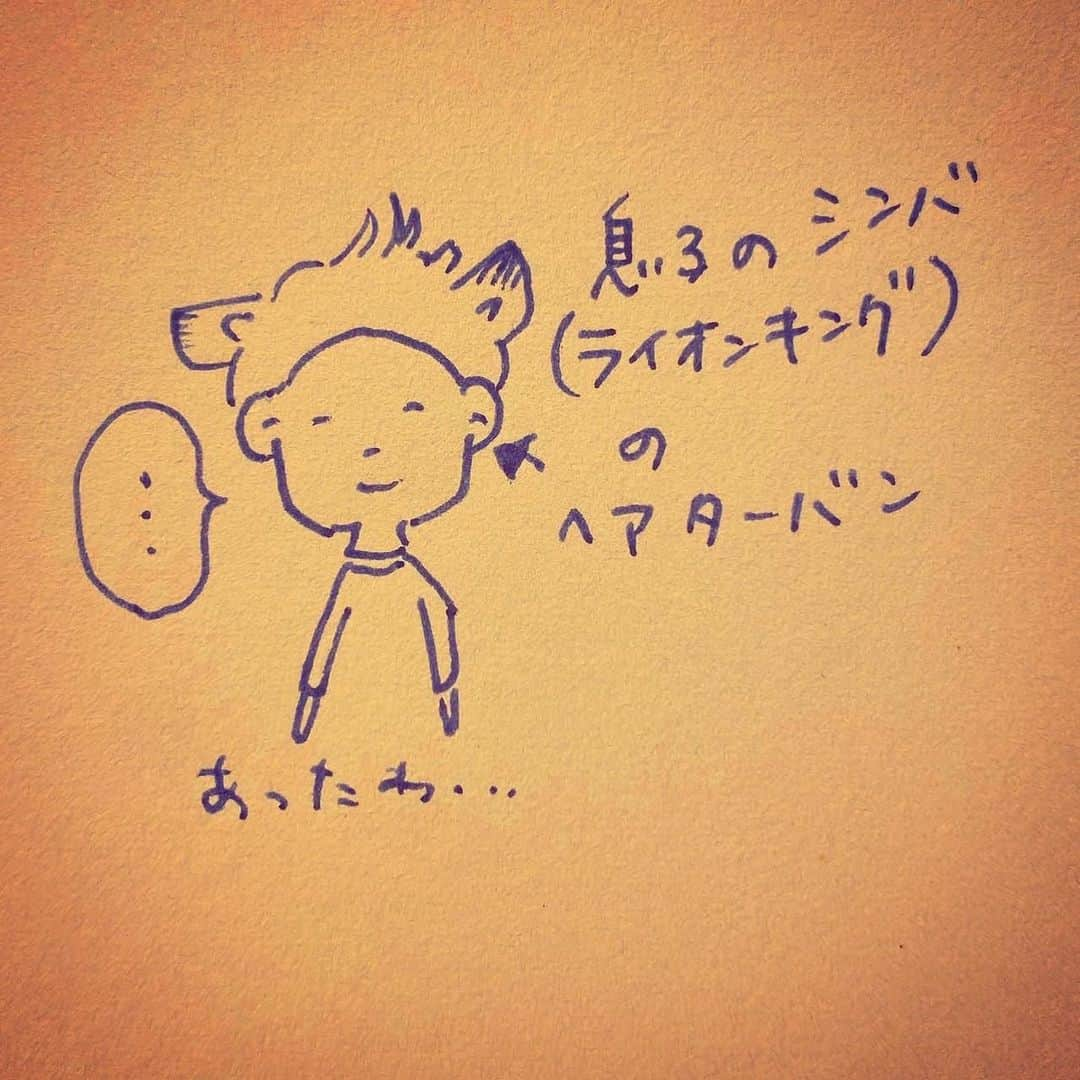 息子のシンバ
(ライオンキング)
の
ヘアターバン
・・・
あったわ・・・